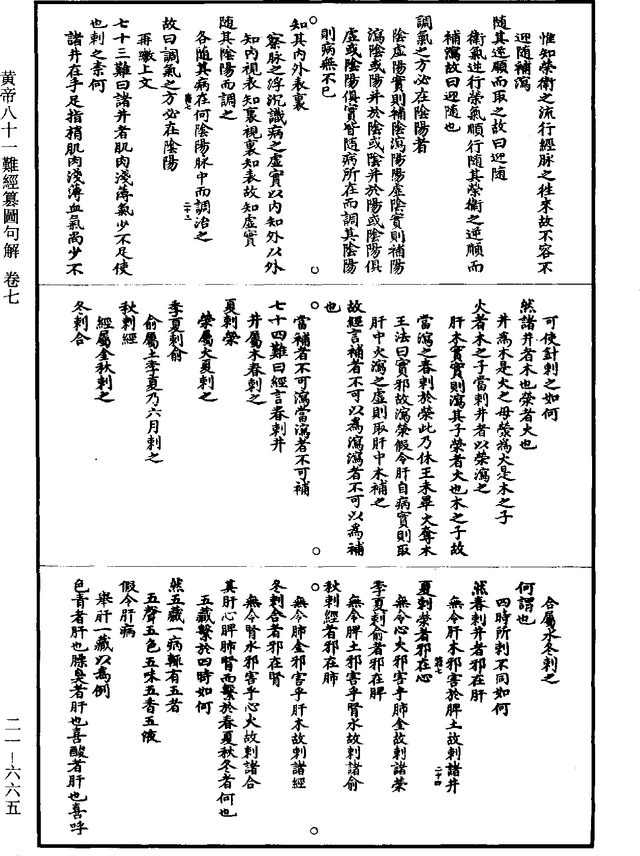 惟知榮衛之流行經脉之往來故不容不
迎隨補瀉
隨其逆順而取之故曰迎隨
衛氣逆行榮氣順行隨其榮衛之逆順而
補瀉故曰迎隨也
調氣之方必在陰陽者
陰虛陽實則補陰瀉陽陽虛陰實則補陽
瀉陰或陽并於陰或陰并於陽或陰陽俱
虛或陰陽俱實皆隨病所在而調其陰陽
則病無不已
知其內外表裏
察脉之浮沉識病之虛實以內知外以外
知內視表知裏視裏知表故知虛實
隨其陰陽而調之
各隨其病在何陰陽脉中而調治之
故曰調氣之方必在陰陽
再繳上文
七十三難曰諸井者肌肉淺薄氣少不足使
也刺之柰何
諸井在手足指梢肌肉淺薄血氣尚少不
可使針刺之如何
然諸井者木也榮者火也
井為木是火之母榮為火是木之子
火者木之子當刺井者以榮瀉之
肝木實實則瀉其子榮者火也木之子故
當瀉之春刺於榮此乃休王未畢火奪木
王法曰實邪故瀉榮假令肝自病實則取
肝中火瀉之虛則取肝中木補之
故經言補者不可以為瀉瀉者不可以為補
也
當補者不可瀉當瀉者不可補
七十四難曰經言春刺井
井屬木春刺之
夏刺榮
榮屬火夏刺之
季夏刺俞
俞屬土季夏乃六月刺之
秋刺經
經屬金秋刺之
冬刺合
合屬水冬刺之
何謂也
四時所刺不同如何
然春刺井者邪在肝
無令肝木邪害於脾土故刺諸井
夏刺榮者邪在心
無令心火邪害乎肺金故刺諸榮
季夏刺俞者邪在脾
無令脾土邪害乎腎水故刺諸俞
秋刺經者邪在肺
無令肺金邪害乎肝木故刺諸經
冬刺合者邪在腎
無令腎水邪害乎心火故刺諸合
其肝心脾肺腎而繫於春夏秋冬者何也
五藏繫於四時如何
然五藏一病輒有五者
五聲五色五味五香五液
假令肝病
舉肝一藏以為例
色青者肝也臊臭者肝也喜酸者肝也喜呼
黃帝八十一難經纂圖句解 卷七
二一-六六五